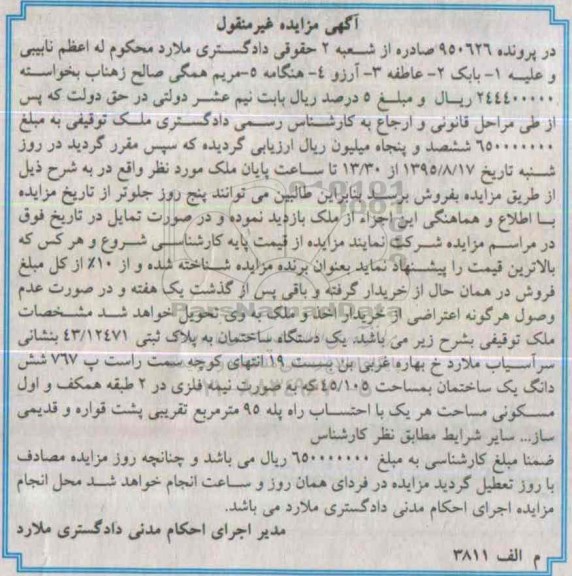 آگهی مزایده غیرمنقول
در پرونده ۹۵۰۶۲۶ صادره از شعبه ۲ حقوقی دادگستری ملارد محکوم له اعظم نایبی
و علیه ۱- بابک ۲- عاطفه ۳- آرزو ٤- هنگامه ۵-مریم همگی صالح زهتاب بخواسته
۲٤٤٤۰۰۰۰۰ ریال و مبلغ ۵ درصد ریال بابت نیم عشر دولتی در حق دولت که پس
از طی مراحل قانونی و ارجاع به کارشناس رسمی دادگستری ملک توقیفی به مبلغ
٦۵۰۰۰۰۰۰۰ ششصد و پنجاه میلیون ریال ارزیابی گردیده که سپس مقرر گردید در روز
شنبه تاریخ ۱۳۹۵/۸/۱۷ از ۱۳/۳۰ تا ساعت پایان ملک مورد نظر واقع در به شرح ذیل
از طریق مزایده بفروش برسد. بنابراین طالبین می توانند پنج روز جلوتر از تاریخ مزایده
با اطلاع و هماهنگی این اجراء از ملک بازدید نموده و در صورت تمایل در تاریخ فوق
در مراسم مزایده شرکت نمایند مزایده از قیمت پایه کارشناسی شروع و هر کس که
بالاترین قیمت را پیشنهاد نماید بعنوان برنده مزایده شناخته شده و از ۱۰٪ از کل مبلغ
فروش در همان حال از خریدار گرفته و باقی پس از گذشت یک هفته و در صورت عدم
وصول هرگونه اعتراضی از خریدار اخذ و ملک به وی تحویل خواهد شد مشخصات
ملک توقیفی بشرح زیر می باشد. یک دستگاه ساختمان به پلاک ثبتی ٤۳/۱۲٤۷۱ بنشانی
سرآسیاب ملارد خ بهاره غربی بن بست ۱۹ انتهای کوچه سمت راست پ ۷٦۷ شش
دانگ یک ساختمان بمساحت ٤۵/۱۰۵ که به صورت نیمه فلزی در ۲ طبقه همکف و اول
مسکونی مساحت هر یک با احتساب راه پله ۹۵ مترمربع تقریبی پشت قواره و قدیمی
ساز... سایر شرایط مطابق نظر کارشناس
ضمنا مبلغ کارشناسی به مبلغ ٦۵۰۰۰۰۰۰۰ ریال می باشد و چنانچه روز مزایده مصادف
با روز تعطیل گردید مزایده در فردای همان روز و ساعت انجام خواهد شد محل انجام
مزایده اجرای احکام مدنی دادگستری ملارد می باشد.
مدیر اجرای احکام مدنی دادگستری ملارد
م الف ۳۸۱۱